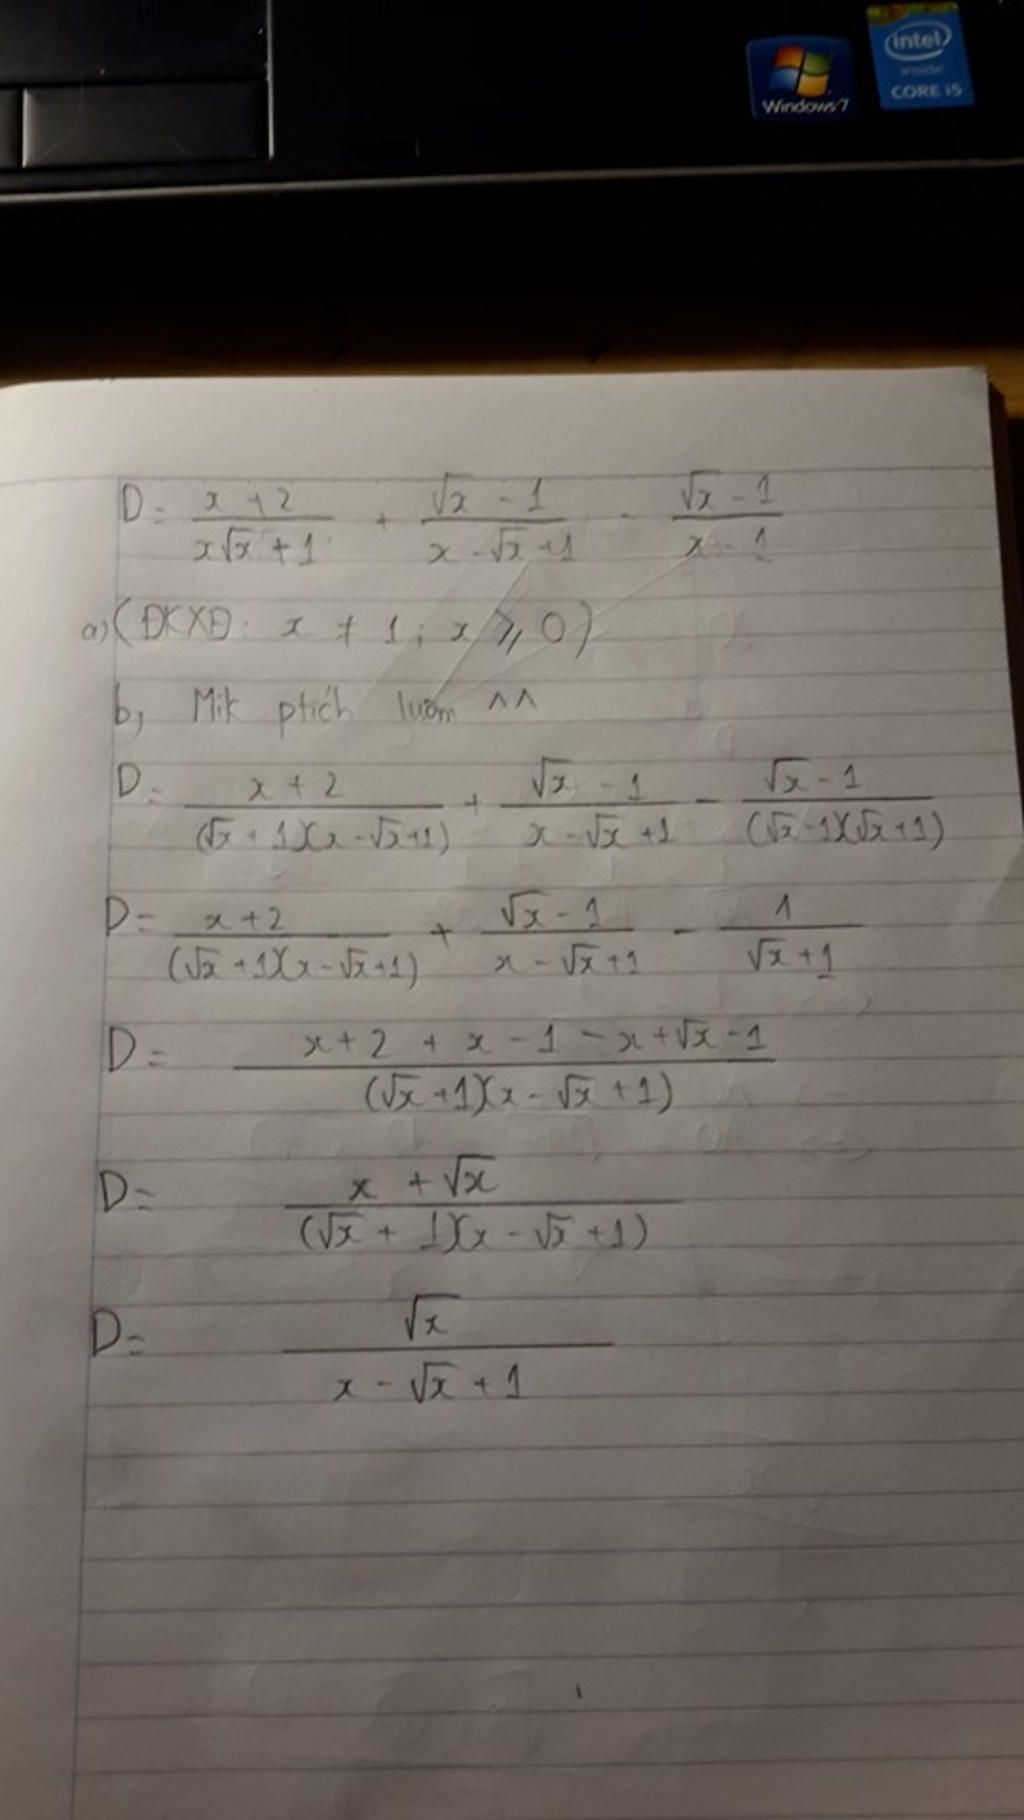 Windows 7
intel
inside
CORE i5
D = (x + 2)/(x√x + 1) + (√x - 1)/(x - √x + 1) - (√x - 1)/(x - 1)
a) (ĐKXĐ: x ≠ 1; x ⩾ 0)
b, Mik ptích luôn ^^
D = (x + 2)/((√x + 1)(x - √x + 1)) + (√x - 1)/(x - √x + 1) - (√x - 1)/((√x - 1)(√x + 1))
D = (x + 2)/((√x + 1)(x - √x + 1)) + (√x - 1)/(x - √x + 1) - 1/(√x + 1)
D = (x + 2 + x - 1 - x + √x - 1)/((√x + 1)(x - √x + 1))
D = (x + √x)/((√x + 1)(x - √x + 1))
D = √x/(x - √x + 1)